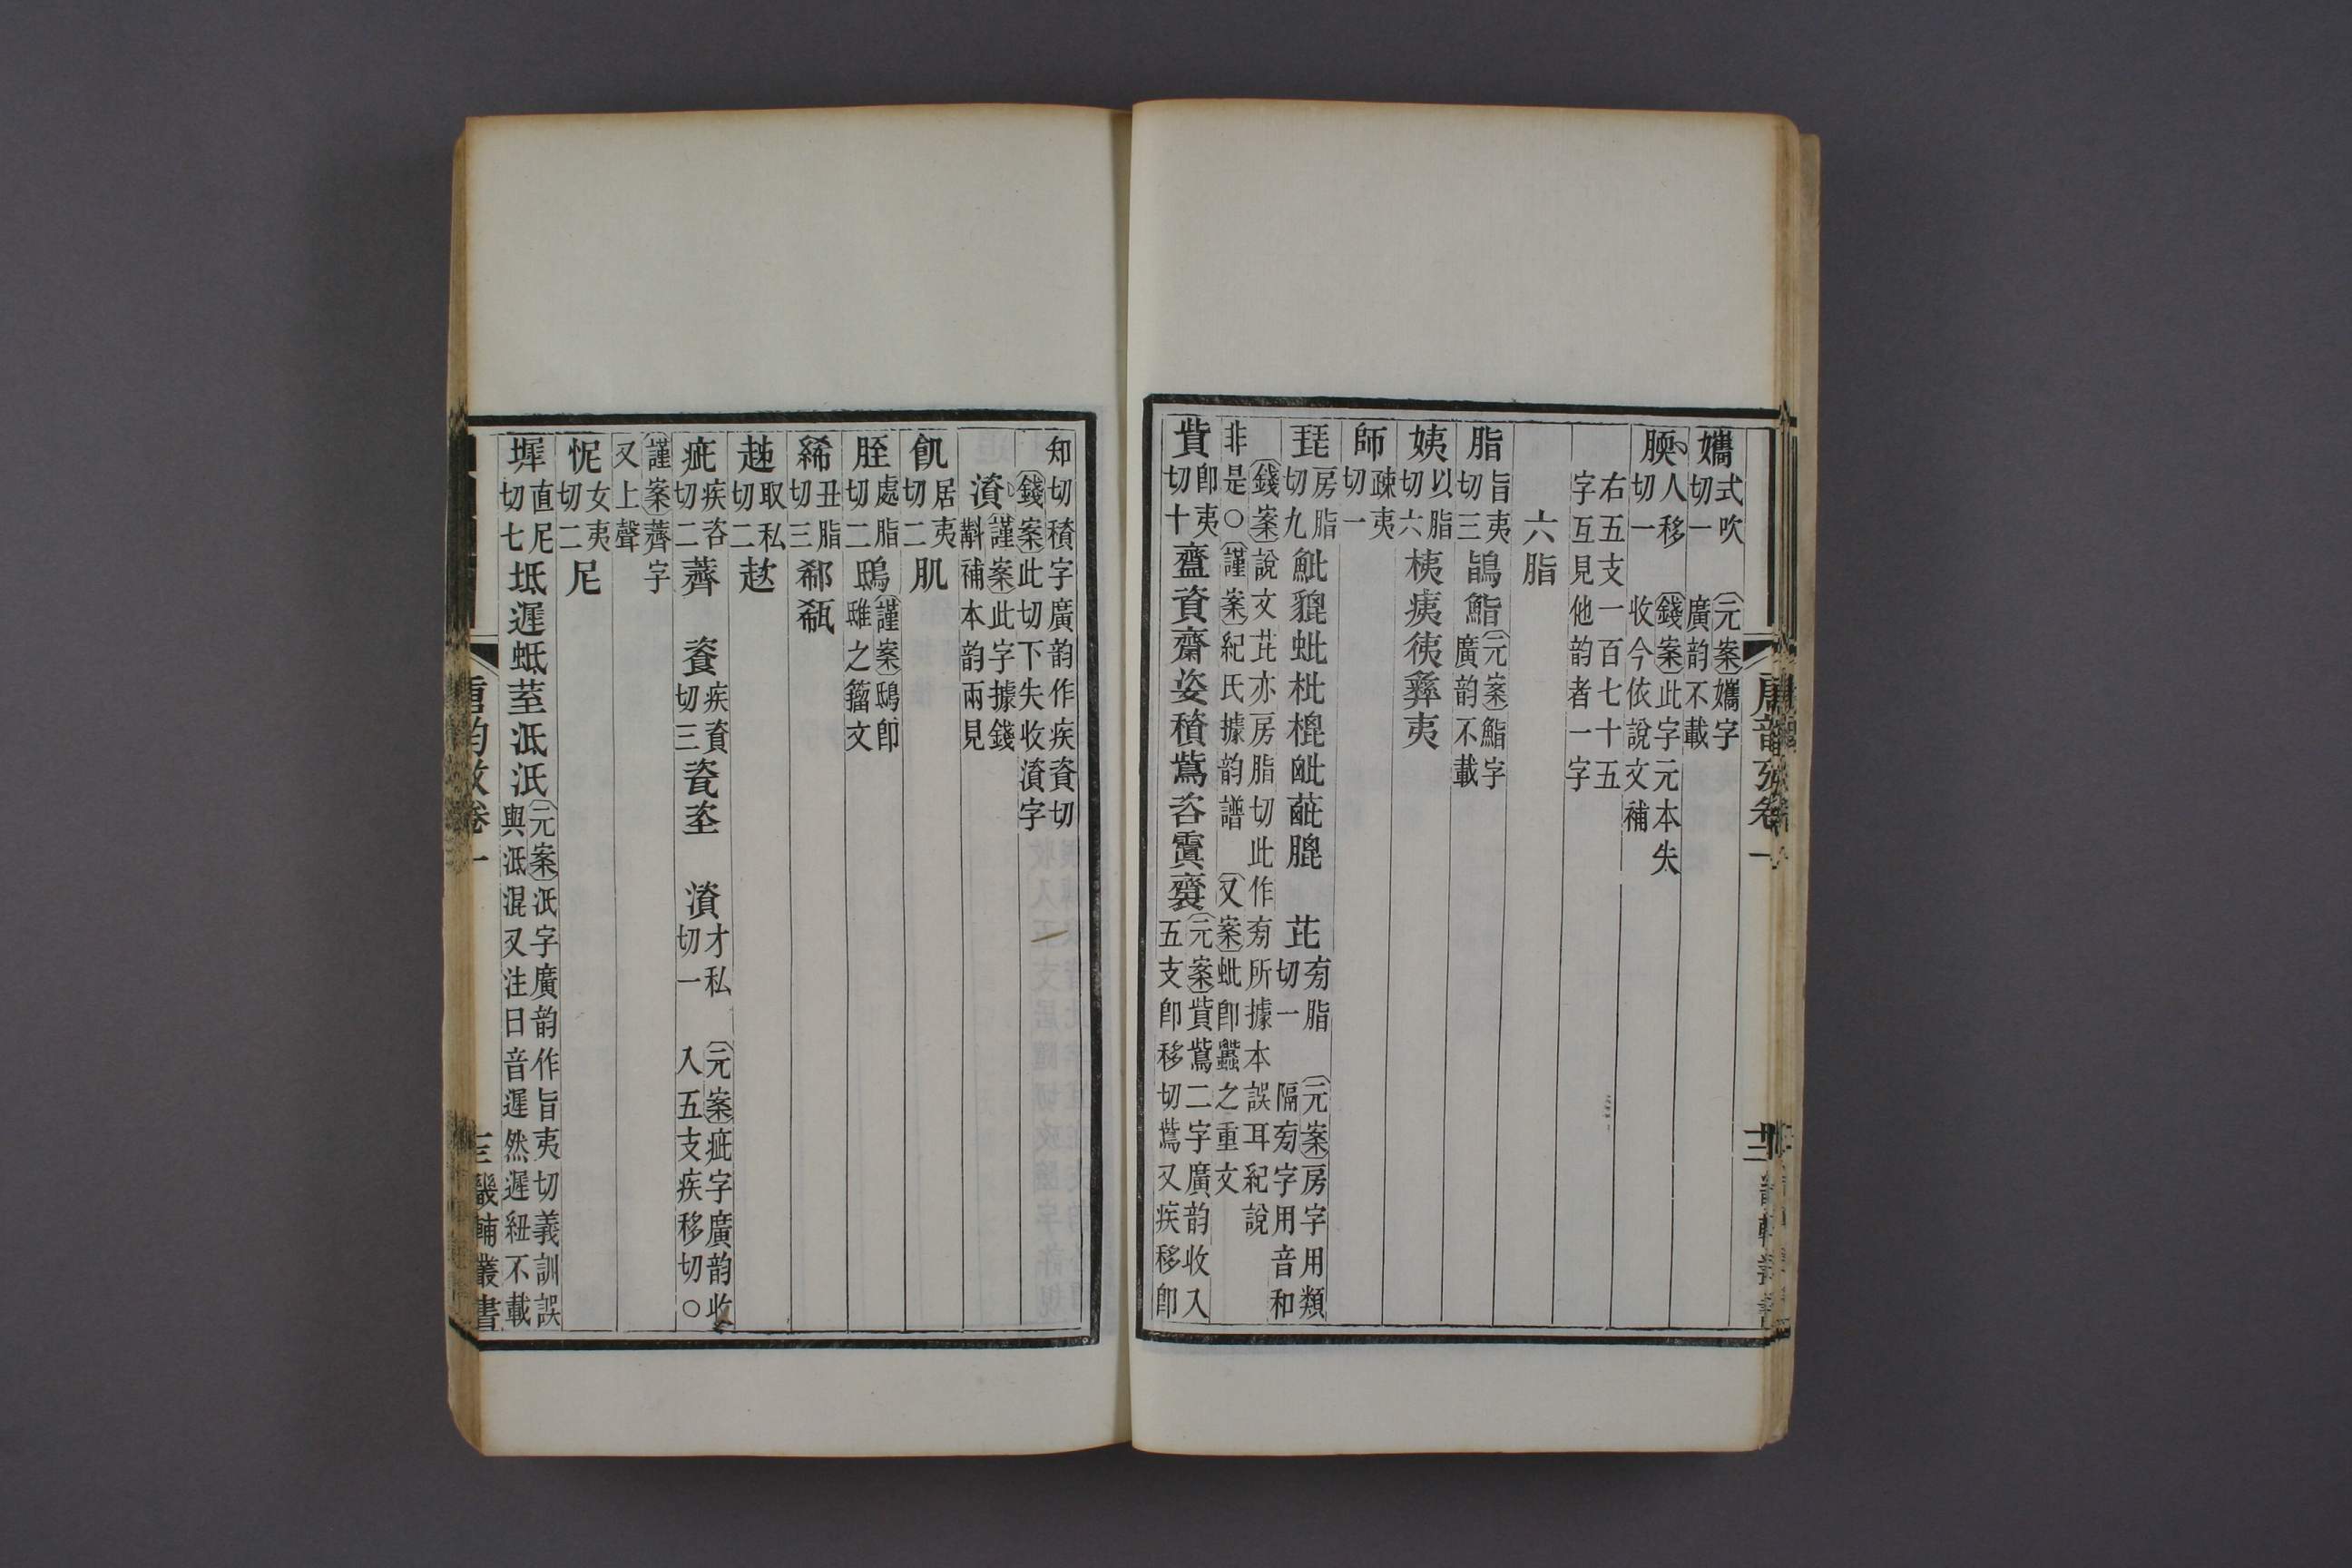 孈式吹切一元案孈字廣韵不載
腝人移切一錢案此字元本失收今依說文補
右五支一百七十五字互見他韵者一字
六脂
脂旨夷切三鴲鮨元案鮨字廣韵不載
姨以脂切六桋痍徥彝夷
師疎夷切一
琵房脂切九魮貔蚍枇槐毗蓖膍芘旁脂切一元案房字用類隔旁字用音和
錢案說文芘亦房脂切此作旁所據本誤耳紀說非是○謹案紀氏據韵譜又案蚍卽蠶之重文
貲卽夷切十齍資齋姿穧鴜咨齎元案貲鴜二字廣韵收入五支卽移切鴜又疾移卽
唐韵攷卷一
知切穧字廣韵作疾資切錢案此切下失收澬字
澬謹案此字據錢斠補本韵兩見
飢居夷切二肌
胵處脂切二鴟謹案鴟卽雖之籀文
絺丑脂切三郗瓻
趀取私切二趑
疵疾咨切二薺餈疾資切三瓷垐澬才私切一元案疵字廣韵收入五支疾移切○
謹案薺字又上聲
怩女夷切二尼
墀直尼切七坻遲蚳荎泜汦元案汦字廣韵作旨夷切義訓誤與泜混又注曰音遲然遲紐不載
唐韵攷卷一
三畿輔叢書